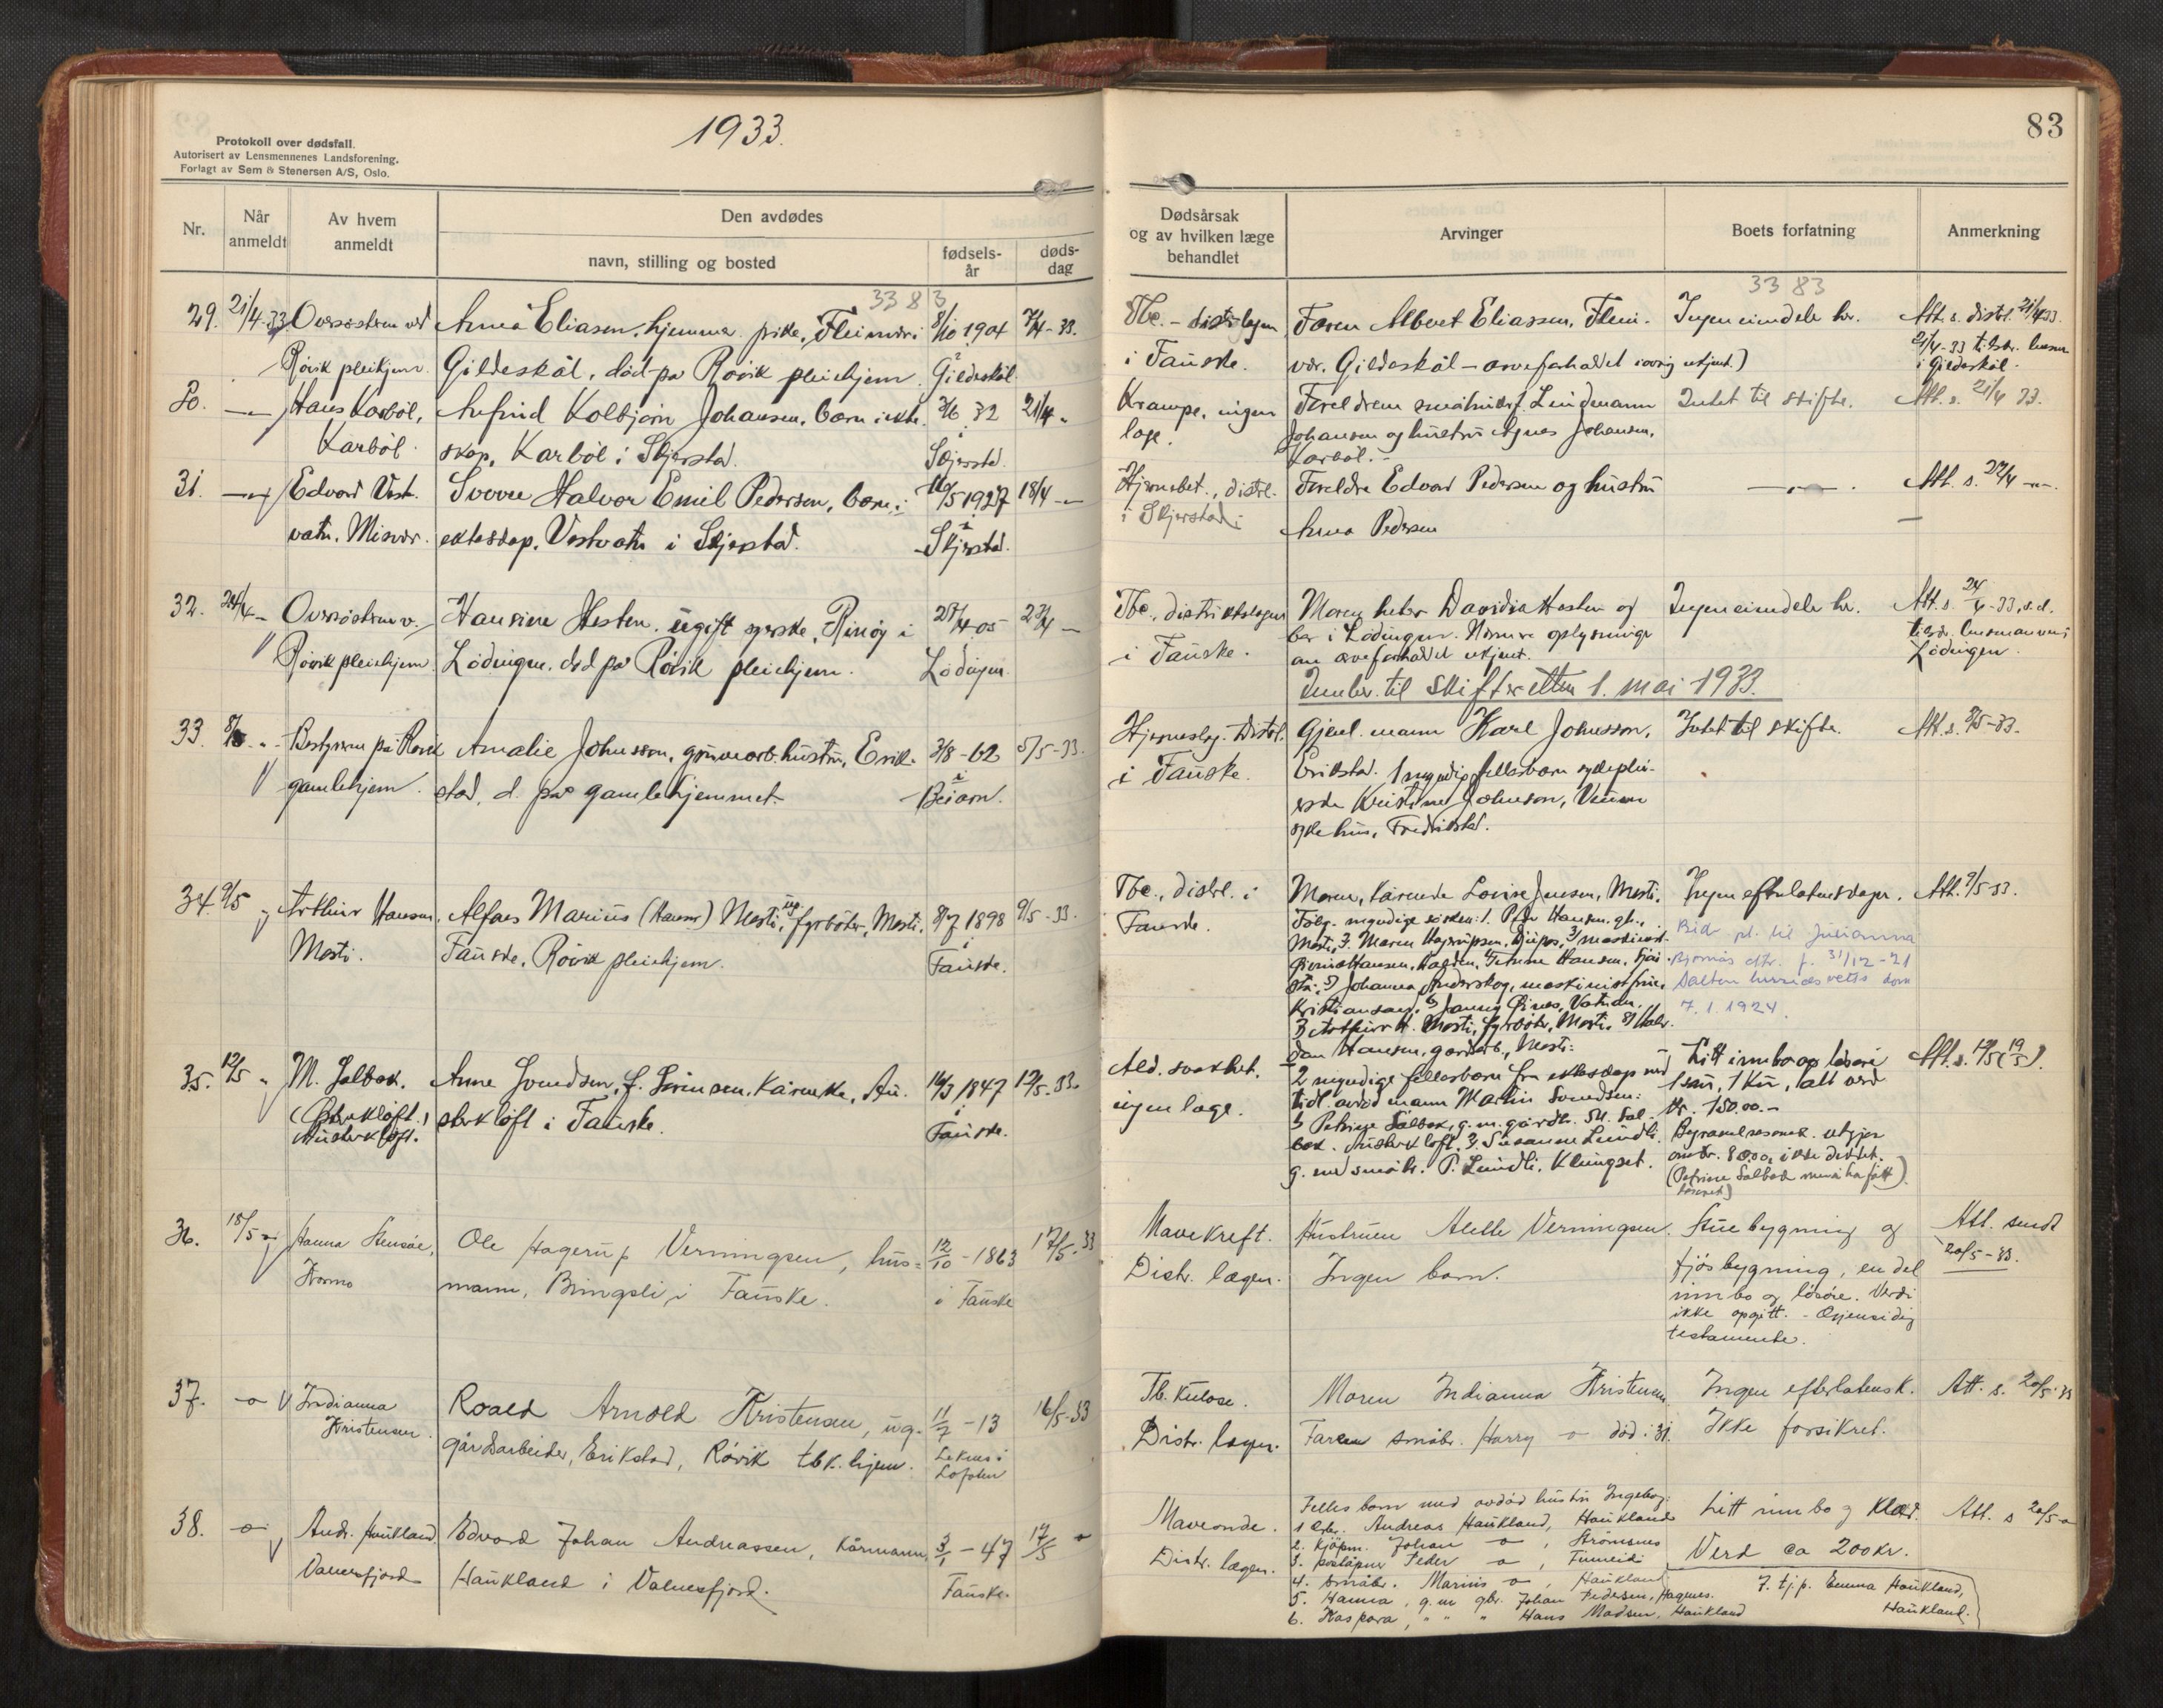 1933.
83
Protokoll over dødsfall.
Autorisert av Lensmennenes Landsforening.
Forlagt av Sem & Stenersen A/S, Oslo.
Nr.
Når anmeldt
Av hvem anmeldt
Den avdødes
navn, stilling og bosted
fødsels-år
døds-dag
Dødsårsak og av hvilken læge behandlet
Arvinger
Boets forfatning
Anmerkning
3383
3383
29. 21/4-33 Oversøstren ved Anna Eliasen, hjemmev. pike, Fleinvær i 8/10 1904 7/4-33. Tbc. - distr.lægen Faren Albert Eliassen, Flein- Ingen eiendeler. Att. s. distr. 21/4 33.
Røvik pleiehjem. Gildeskål, død på Røvik pleiehjem. Gildeskål. i Fauske. vær, Gildeskål - arveforholdet iøvrig ukjent.) 21/4-33 tilskr. lensm. i Gildeskål.
30. Hans Karbøl, Arfind Kolbjørn Johansen, barn i ekte- 3/6 32 21/4 Krampe, ingen Foreldrene småbruker Lindmann Intet til skifte. Att. s. 21/4 33.
Karbøl. skap, Karbøl i Skjerstad. i Skjerstad. læge. Johansen og hustru Agnes Johansen, Karbøl.
31. Edvard Vest- Sverre Halvor Emil Pedersen, barn i 16/5 1927 18/4 Hjernebet., distrl. Foreldre Edvard Pedersen og hustru Att. s. 22/4
vatn, Misvær. ektesskap, Vestvatn i Skjerstad. i Skjerstad. i Skjerstad. Anna Pedersen
32. 24/4 Oversøstren v. Hansine Hesten, ugift syerske, Rinøy i 27/4 05 23/4 Tbc., distriktslægen Moren heter Davidia Hesten og Ingen eiendeler. Att. s. 24/4-33, s.d.
Røvik pleiehjem. Lødingen, død på Røvik pleiehjem. i Lødingen. i Fauske. bor i Lødingen. Nærmere oplysninger tilskr. lensmannen i
om arveforholdet ukjent. Lødingen.
Innber. til skifteretten 1. mai 1933.
33. 8/5 Bestyreren på Røvik Amalie Johnsson, gruvearb.hustru, Erik- 3/8-62 5/5-33. Hjerneslag. Distrl. Gjenl. mann Karl Johnsson, Intet til skifte. Att. s. 8/5-33.
gamlehjem. stad, d. på gamlehjemmet. i Beiarn. i Fauske. Erikstad. 1 myndig fellesbarn sykeplei-
erske Kristine Johnson, Veum
sykehus, Fredrikstad.
34. 9/5 Arthur Hansen, Alfons Marius (Hansen) Mosti, ug. fyrbøter, Mosti, 8/7 1898 9/5-33. Tbc., distrl. i Moren, kårenke Lovise Jensen, Mosti. Ingen efterlatenskaper. Att. 9/5-33.
Mosti. Fauske, Røvik pleiehjem. i Fauske. Fauske. Følg. myndige søsken: 1. Peder Hansen, gbr.,
Mosti, 2. Maren Hagerupsen, Djupos, 3/ maskinist Bid. pl. til Julianna
Hansen, Halden, Petrine Hansen, Bjørnås dtr. f. 31/12-21
5) Johanna Anderskog, maskinistfrue, Salten herredsretts dom
Kristiansand, 6) Jenny 7.1.1924.
7) Arthur H. Mosti, fyrbøter, Mosti, 8) Hal-
dan Hansen, gårdarb., Mosti.
35. 12/5 M. Salbak. Anne Svendsen, f. Sørensen, kårenke, Au- 16/3 1847 12/5-33. Ald. svakhet, 2 myndige fellesbarn fra ekteskap med Litt innbo og løsøre Att. s. 19/5 (19/5).
(Østerkløft.) sterkløft i Fauske. i Fauske. ingen læge. tidl. avdød mann Martin Svendsen: 1 sau, 1 ku, alt verd
Austerkløft. 1) Petrine Salbak, g.m. gårdbr. M. Sal- kr. 150.00.-
bak, Austerkløft, 2) Susanne Lundli, Begravelsesomk. utgjør
g. med småbr. P. Lundli, Klungset. omkr. 80.00, ikke dekket.
(Petrine Salbak menes ha fått løsøret)
36. 18/5 Hanna Stensøe, Ole Hagerup Verningsen, hus= 12/10-1863 17/5-33 Mavekreft. Hustruen Alette Verningsen. Stuebygning og Att. sendt
Kosmo mann, Bringsli i Fauske. i Fauske Distr. lægen. Ingen barn. fjøsbygning, en del 20/5-33.
innbo og løsøre. Verdi
ikke opgitt. - Gjensidig
testamente.
37. Indianna Roald Arnold Kristensen, ug. 11/7-13 16/5-33 Tb.kulose. Moren Indianna Kristensen Ingen efterlatensk. Att. s. 20/5-33
Kristensen. gårdsarbeider, Erikstad, Røvik tbk. hjem. Leknes i Lofoten Distr. lægen. Faren småbr. Harry død i 31. Ikke forsikret.
38. Andr. Haukland, Edvard Johan Andreassen, kårmann, 3/1-47 17/5 Maveonde. Felles barn med avdød hustru Ingeborg: Litt innbo og klær. Att. s 20/5
Valnesfjord Haukland i Valnesfjord. Fauske. Distr. lægen. 1 Gbr. Andreas Haukland, Haukland Verd ca 200 kr.
2. Kjøpm. Johan , Strømsnes
3. poståpner Peder , Finneid
4. småbr. Marius , Haukland 7. tj.p. Emma Haukland,
5. Hanna, g.m gbr. Johan Pedersen, Hagnes. Haukland.
6. Kaspara, " " " Hans Madsen, Haukland